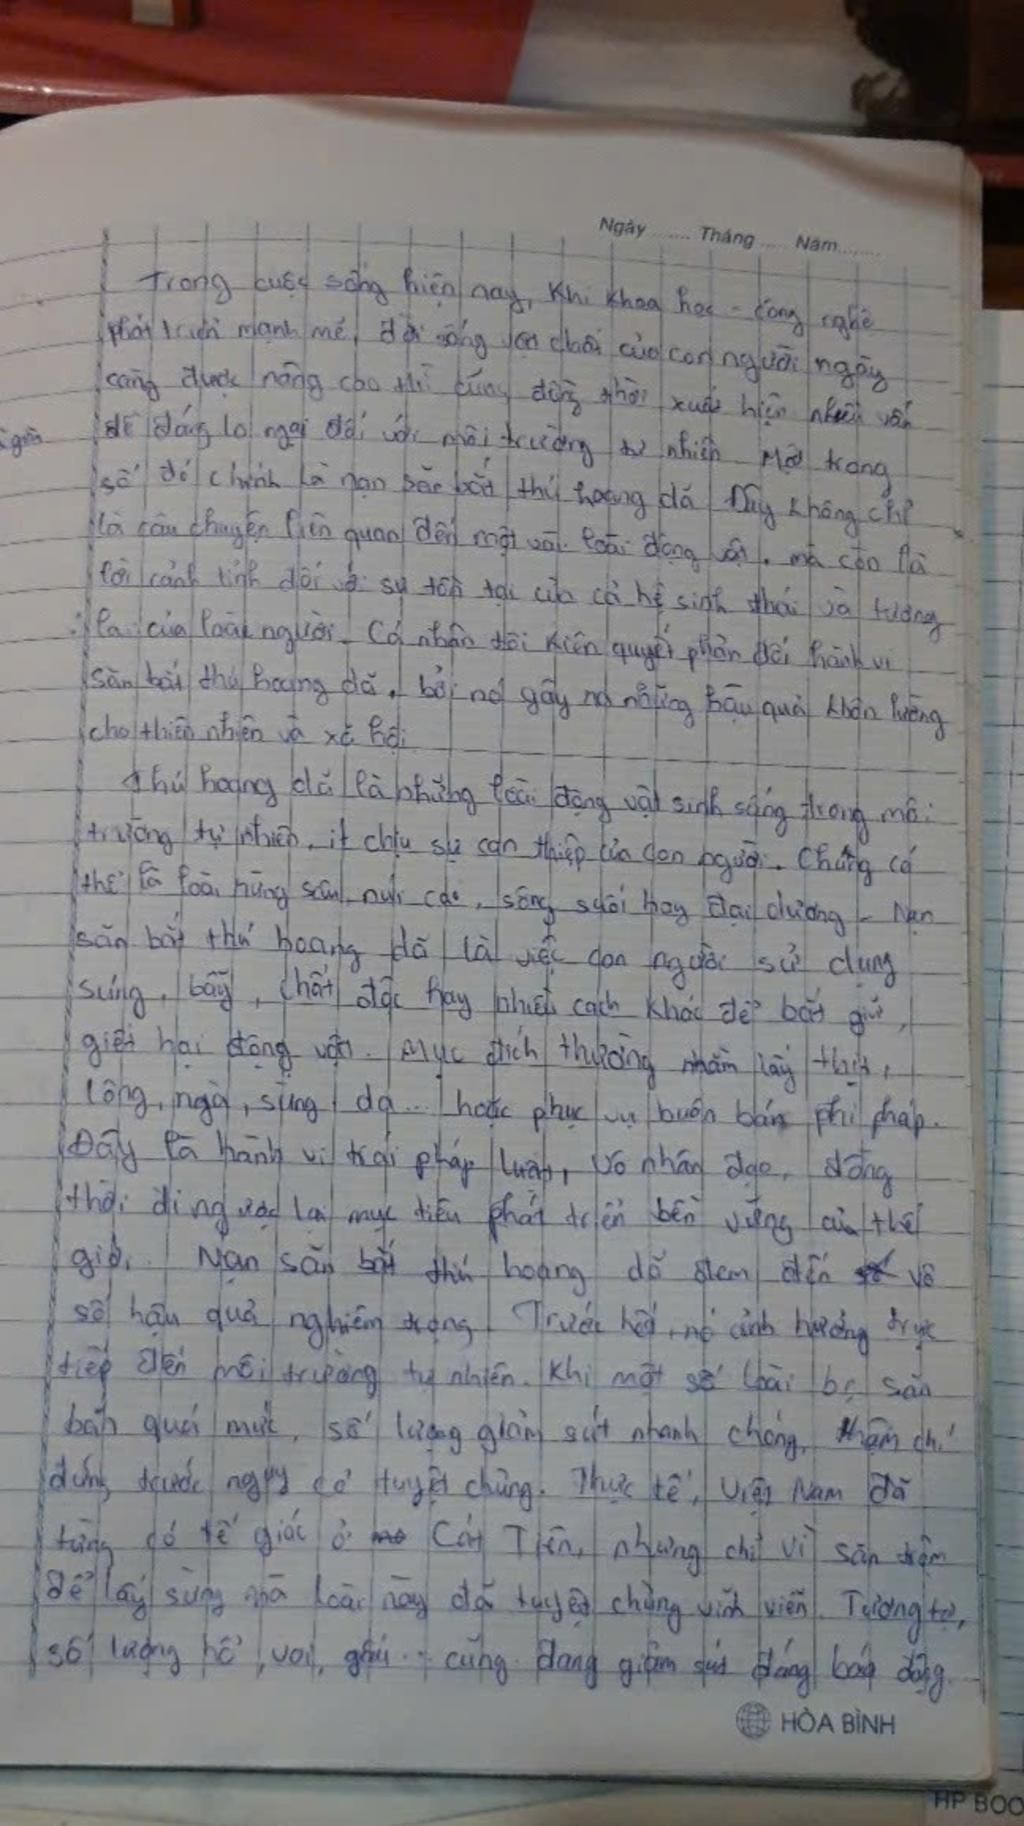 Ngày ........ Tháng ..... Năm........
Trong cuộc sống hiện nay, khi khoa học - công nghệ
phát triển mạnh mẽ, đời sống của con người ngày
càng được nâng cao thì cũng đồng thời xuất hiện nhiều vấn
đề đáng lo ngại đối với môi trường tự nhiên. Một trong
số đó chính là nạn săn bắt thú hoang dã. Đây không chỉ
là câu chuyện liên quan đến một vài loài động vật, mà còn là
lời cảnh tỉnh đối với sự tồn tại của cả hệ sinh thái và tương
lai của loài người. Cá nhân tôi kiên quyết phản đối hành vi
săn bắt thú hoang dã, bởi nó gây ra những hậu quả khôn lường
cho thiên nhiên và xã hội.
Thú hoang dã là những loài động vật sinh sống trong môi
trường tự nhiên, ít chịu sự can thiệp của con người. Chúng có
thể là loài rừng sâu, núi cao, sông suối hay đại dương - Nạn
săn bắt thú hoang dã là việc con người sử dụng
súng, bẫy, chất độc hay nhiều cách khác để bắt giữ,
giết hại động vật. Mục đích thường nhằm lấy thịt,
lông, ngà, sừng, da... hoặc phục vụ buôn bán phi pháp.
Đây là hành vi trái pháp luật, vô nhân đạo, đồng
thời đi ngược lại mục tiêu phát triển bền vững của thế
giới. Nạn săn bắt thú hoang dã đem đến vô
số hậu quả nghiêm trọng. Trước hết, nó ảnh hưởng trực
tiếp đến môi trường tự nhiên. Khi một số loài bị săn
bắn quá mức, số lượng giảm sút nhanh chóng, thậm chí
đứng trước nguy cơ tuyệt chủng. Thực tế, Việt Nam đã
từng có tê giác ở Cát Tiên, nhưng chỉ vì săn trộm
để lấy sừng mà loài này đã tuyệt chủng vĩnh viễn. Tương tự,
số lượng hổ, voi, gấu... cũng đang giảm sút đáng báo động.
HÒA BÌNH
HP BOO